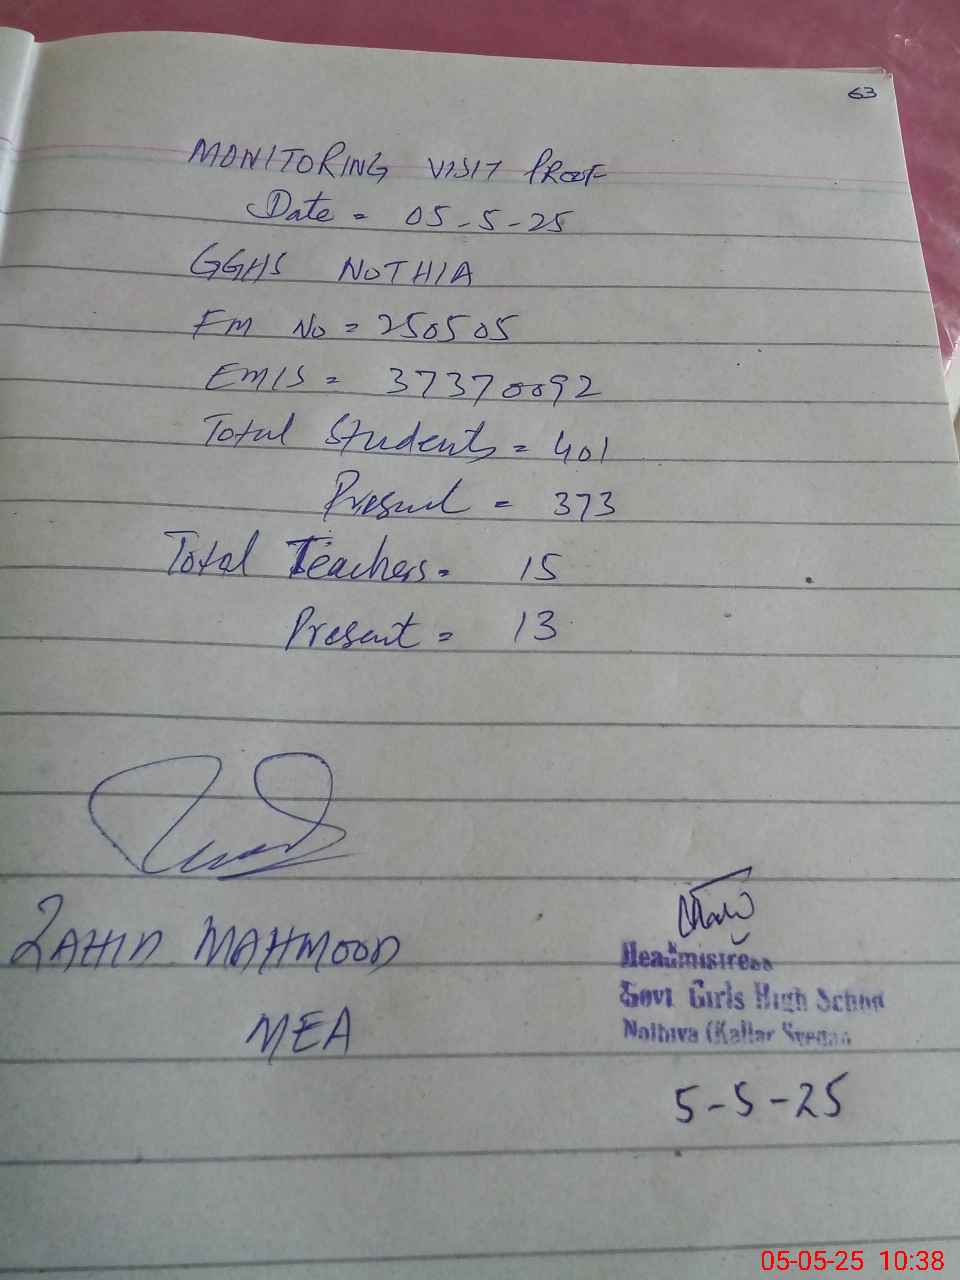 63
MONITORING VISIT PROOF
Date = 05-5-25
GGHS NOTHIA
FM No = 250505
EMIS = 37370092
Total Students = 401
Present = 373
Total Teachers = 15
Present = 13
ZAHID MAHMOOD
MEA
Headmistress
Govt Girls High School
Nothiya (Kallar Syedan
5-5-25
05-05-25 10:38